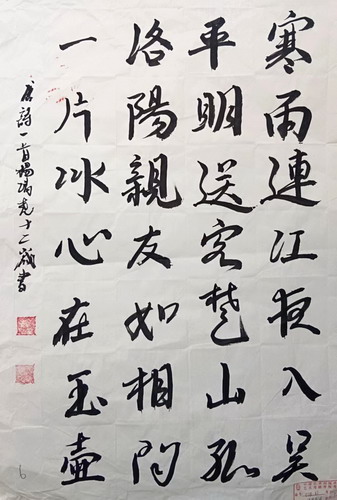 寒雨連江夜入吴
平明送客楚山孤
洛陽親友如相问
一片冰心在玉壺
唐詩一首 十二歲書
6